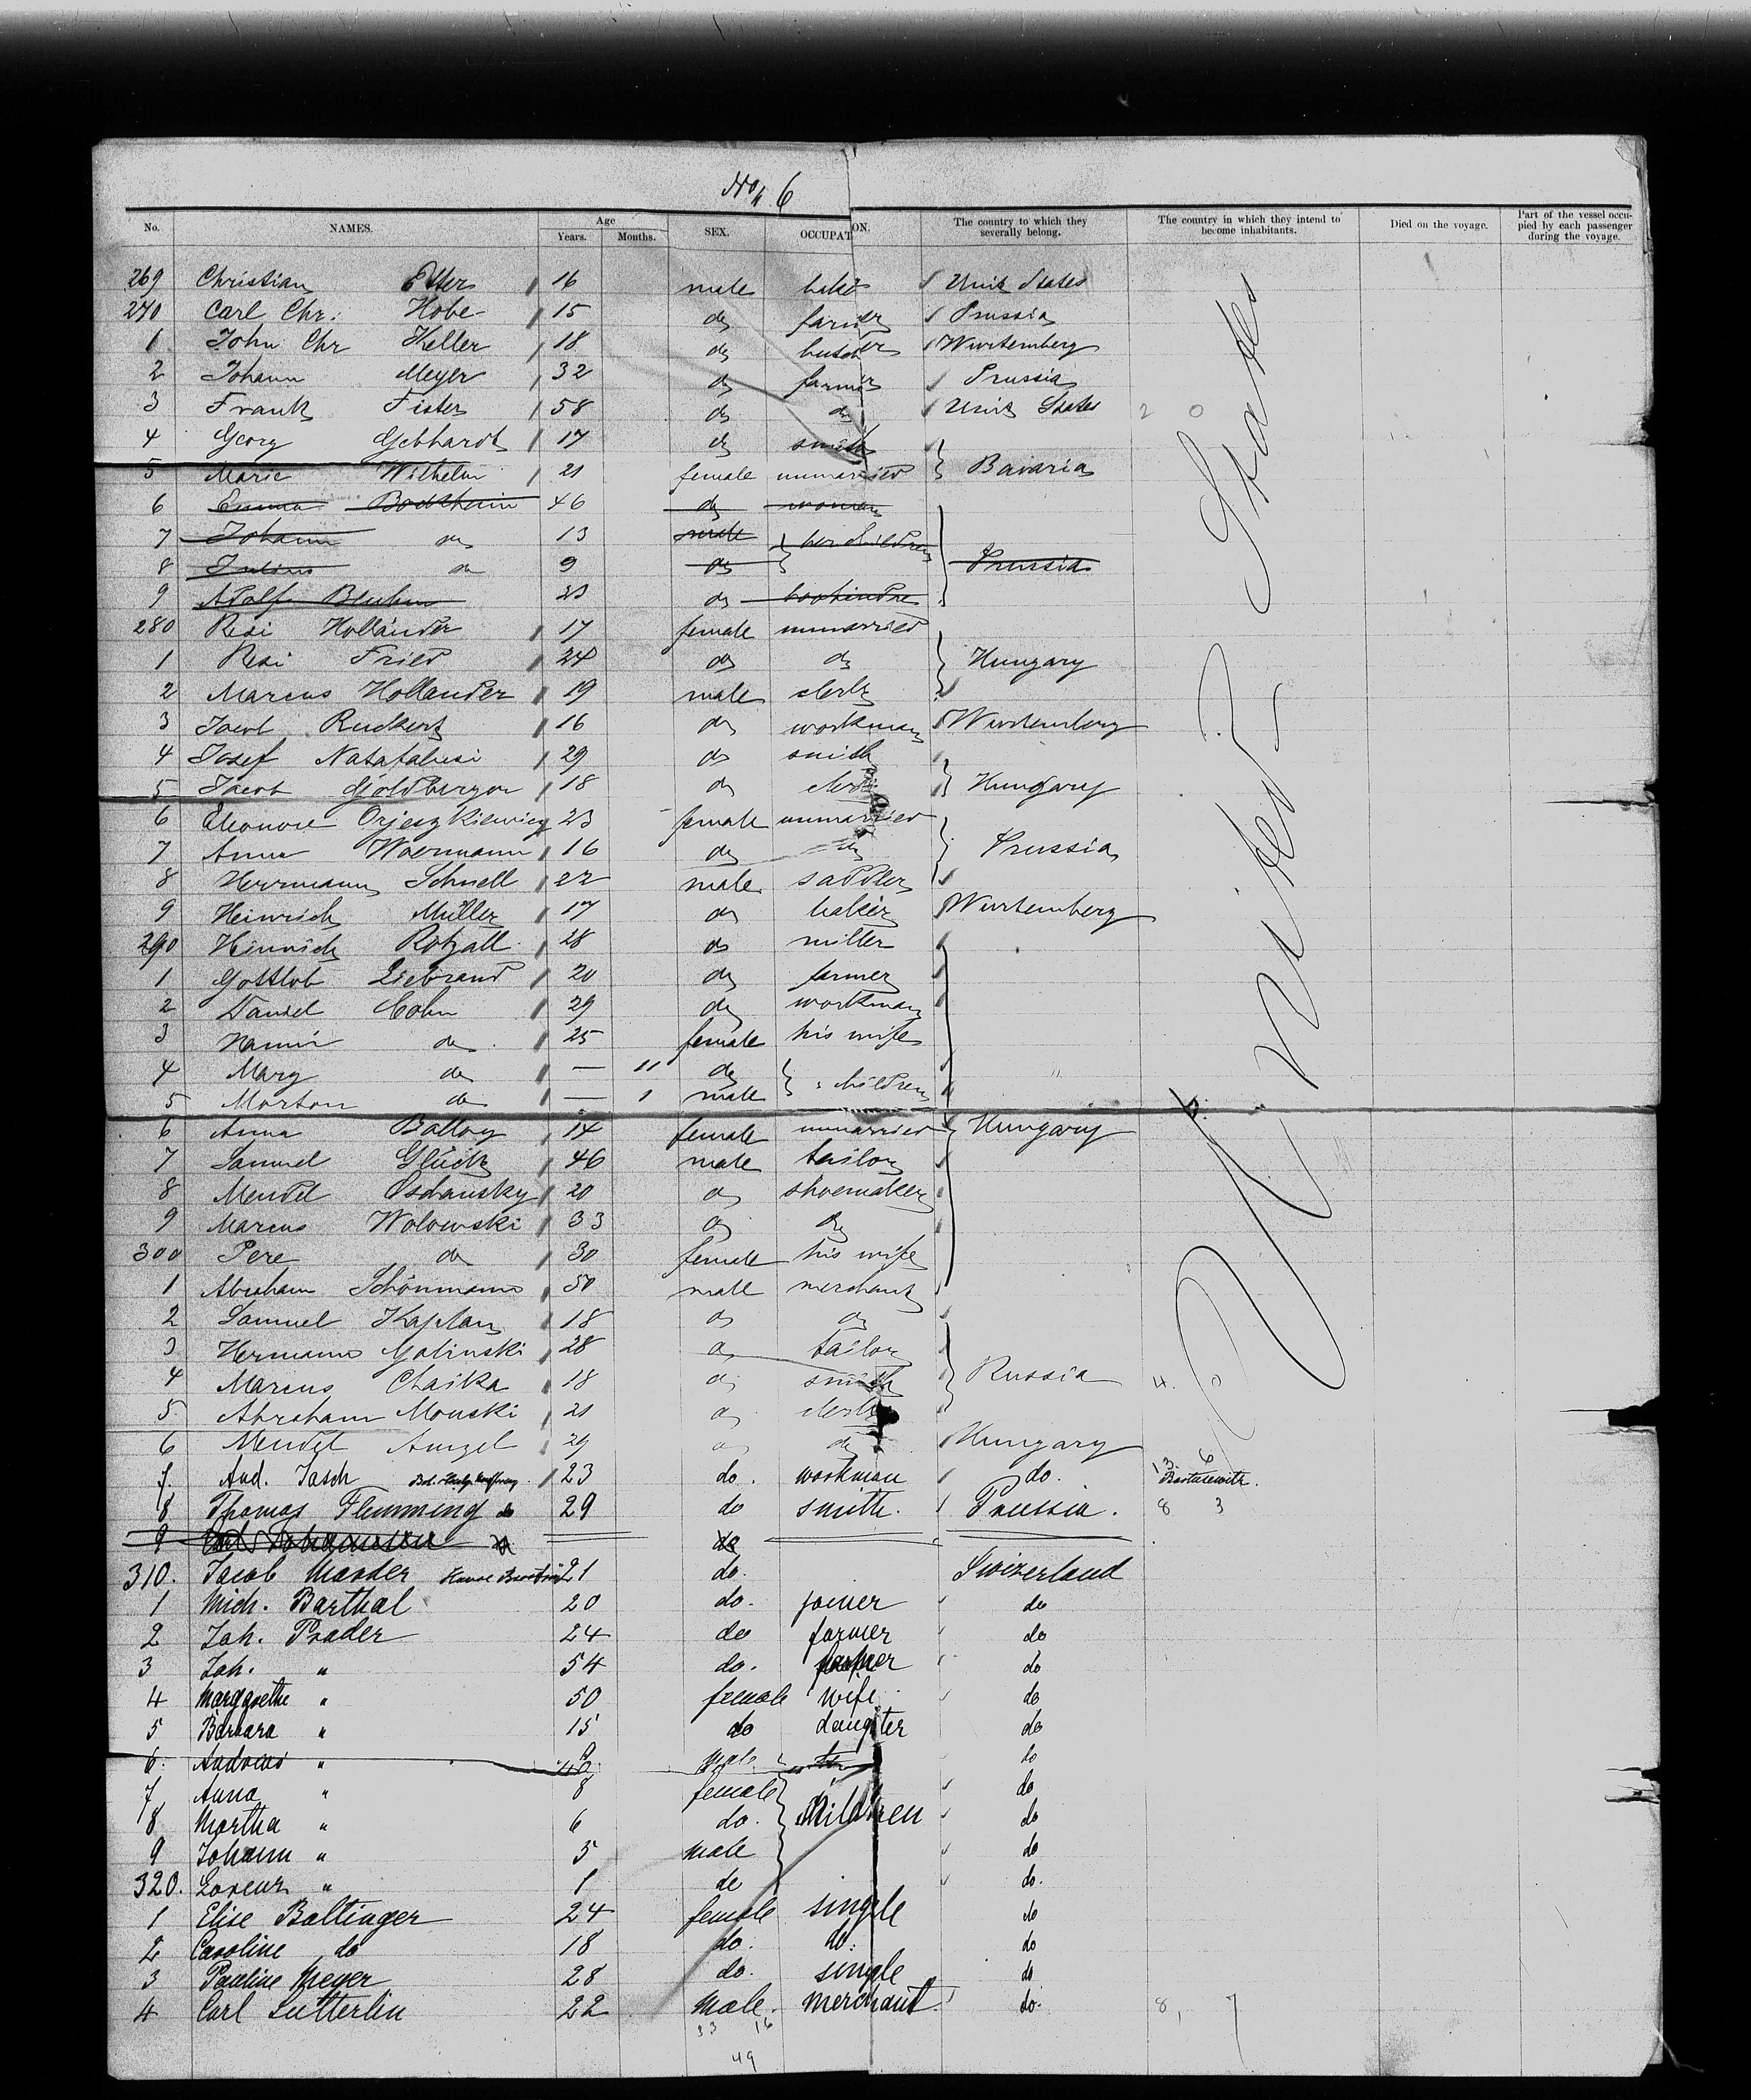 No. 6
No. NAMES. Age Years. Months. SEX. OCCUPATION. The country to which they severally belong. The country in which they intend to become inhabitants. Died on the voyage. Part of the vessel occupied by each passenger during the voyage.
269 Christian Etter 16 male baker Unit States
270 Carl Chr. Hobe 15 do farmer Prussia
1 John Chr Keller 18 do butcher Wurtemberg
2 Johann Meyer 32 do farmer Prussia
3 Frank Fister 58 do do Unit States 2 0
4 Georg Gebhardt 17 do smith
5 Marie Wilhelm 21 female unmarried Bavaria
6 Emma 46 do woman
7 Johann do 13 male her children
8 Julius do 9 do Prussia
9 Adolf 23 do
280 Resi Hollander 17 female unmarried
1 Resi Fried 24 do do Hungary
2 Marcus Hollander 19 male clerk
3 Jacob Ruckert 16 do workman Wurtemberg
4 Josef 29 do smith
5 Jacob Goldberger 18 do clerk Hungary
6 Eleonore Orjeszkiewicz 23 female unmarried
7 Anna Woermann 16 do do Prussia
8 Herrmann Schnell 22 male saddler
9 Heinrich Müller 17 do baker Wurtemberg
290 Heinrich Rotzall 28 do miller
1 Gottlob Liebrand 20 do farmer
2 Daniel Cohn 29 do workman
3 Hanni do 25 female his wife
4 Mary do — 11 do children
5 Morton do — 1 male
6 Anna Balloy 14 female unmarried Hungary
7 Samuel Glück 46 male tailor
8 Mendel Osdansky 20 do shoemaker
9 Marcus Wolowski 33 do do
300 Pere do 30 female his wife
1 Abraham Schönmann 50 male merchant
2 Samuel Kaplan 18 do do
3 Hermann Galinski 28 do tailor
4 Marcus Chaika 18 do smith Russia 4.
5 Abraham Mouski 21 do clerk
6 Mendel Amzel 29 do do Hungary
7. And. Jasch 23 do. workman do. 13. 6
8 Thomas Flemming do 29 do smith. Prussia. 8 3
9 do
310. Jacob Marder 21 do. Swizerland
1 Mich. Barthal 20 do. joiner do
2 Joh. Prader 24 do farmer do
3 Joh. " 54 do. farmer do
4 Margarethe " 50 female wife do
5 Barbara " 15 do daugter do
6. Andreas " male do
7 Anna " 8 female do
8 Martha " 6 do. children do
9 Johann " 5 male do
320. Lorenz " 1 do do.
1 Elise Baltinger 24 female single do
2 Caroline do 18 do. do. do
3 Pauline Meyer 28 do. single do
4 Carl Sutterlin 22 male. merchant do. 8, 7
33 16
49
United States